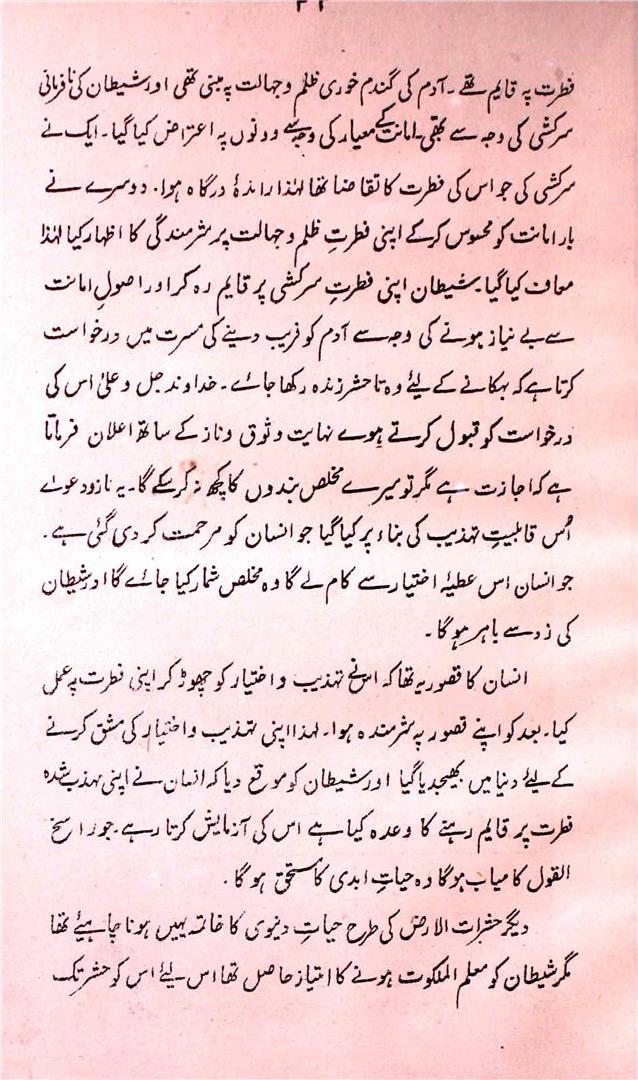 ۳۲
فطرت پہ قایم تھے ۔ آدم کی گندم خوری ظلم و جہالت پہ مبنی تھی اور شیطان کی نافرمانی
سرکشی کی وجہ سے تھی ۔ امانت کے معیار کی وجہ سے دونوں پہ اعتراض کیا گیا ۔ ایک نے
سرکشی کی جو اس کی فطرت کا تقاضا تھا لہٰذا راندۂ درگاہ ہوا ۔ دوسرے نے
بار امانت کو محسوس کرکے اپنی فطرتِ ظلم و جہالت پر شرمندگی کا اظہار کیا لہٰذا
معاف کیا گیا ۔ شیطان اپنی فطرتِ سرکشی پر قایم رہ کر اور اصولِ امانت
سے بے نیاز ہونے کی وجہ سے آدم کو فریب دینے کی مسرت میں درخواست
کرتا ہے کہ بہکانے کے لیئے وہ تا حشر زندہ رکھا جائے ۔ خداوند جل و علیٰ اس کی
درخواست کو قبول کرتے ہوے نہایت وثوق و ناز کے ساتھ اعلان فرماتا
ہے کہ اجازت ہے مگر تو میرے مخلص بندوں کا کچھ نہ کر سکے گا ۔ یہ ناز و دعوے
اُس قابلیتِ تہذیب کی بناء پر کیا گیا جو انسان کو مرحمت کر دی گئی ہے ۔
جو انسان اس عطیۂ اختیار سے کام لے گا وہ مخلص شمار کیا جائے گا اور شیطان
کی زد سے باہر ہو گا ۔
انسان کا قصور یہ تھا کہ اس نے تہذیب و اختیار کو چھوڑ کر اپنی فطرت پہ عمل
کیا ۔ بعد کو اپنے قصور پہ شرمندہ ہوا ۔ لہذا اپنی تہذیب و اختیار کی مشق کرنے
کے لیئے دنیا میں بھیجدیا گیا اور شیطان کو موقع دیا کہ انسان نے اپنی تہذیب شدہ
فطرت پر قایم رہنے کا وعدہ کیا ہے اس کی آزمایش کرتا رہے ۔ جو راسخ
القول کامیاب ہو گا وہ حیاتِ ابدی کا مستحق ہو گا ۔
دیگر حشرات الارض کی طرح حیاتِ دنیوی کا خاتمہ یہیں ہونا چاہیئے تھا
مگر شیطان کو معلم الملکوت ہونے کا امتیاز حاصل تھا اس لیئے اس کو حشر تک